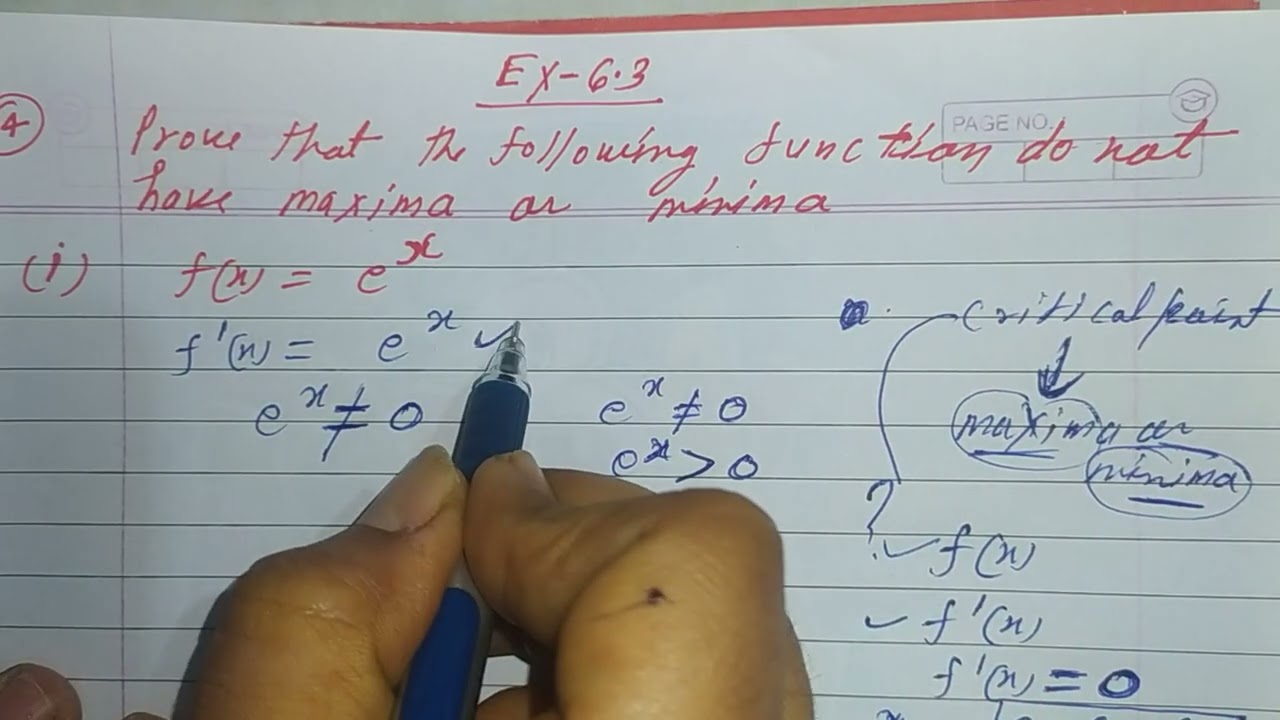 Ex-6.3
PAGE NO.
4
Prove that the following function do not
have maxima or minima
(i) f(x) = e^x
f'(x) = e^x ✓
e^x ≠ 0
e^x ≠ 0
e^x > 0
critical point
↓
maxima or
minima
?
✓ f(x)
✓ f'(x)
f'(x) = 0